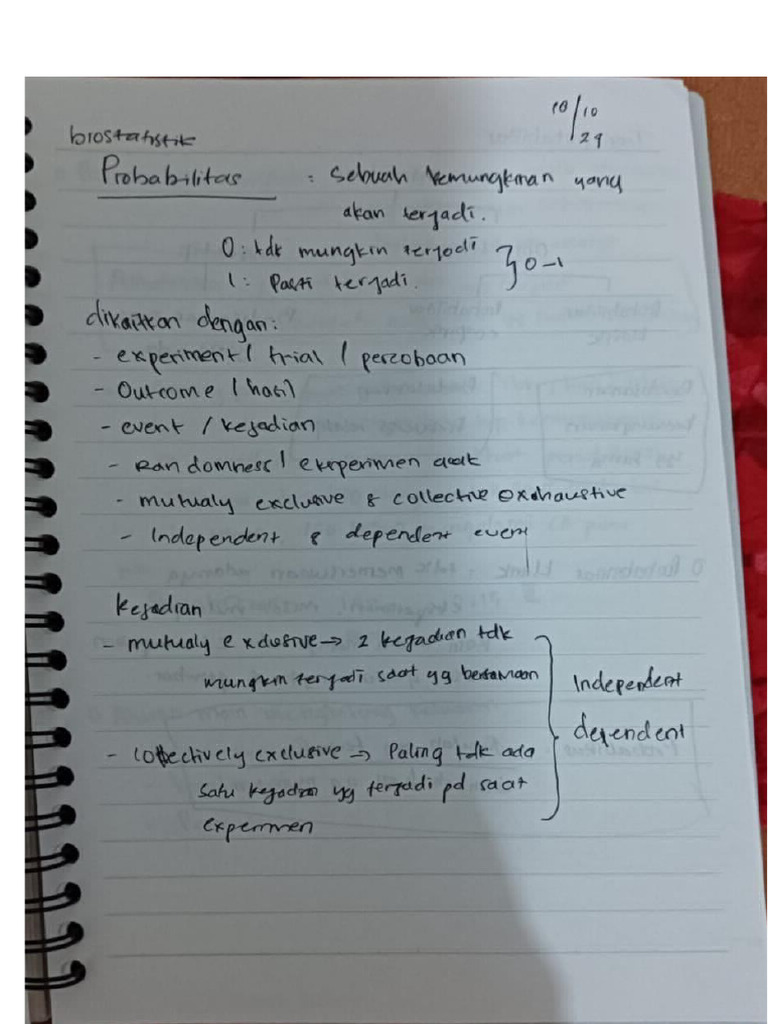 10/10
29
biostatistik
Probabilitas : sebuah kemungkinan yang
akan terjadi.
0 : tdk mungkin terjadi
1 : Pasti terjadi.
} 0-1
dikaitkan dengan:
- experiment / trial / percobaan
- Outcome / hasil
- event / kejadian
- Randomness / eksperimen acak
- mutualy exclusive & collective exhaustive
- Independent & dependent event
Kejadian
- mutualy exclusive → 2 kejadian tdk
mungkin terjadi saat yg bersamaan
- Collectively exclusive → Paling tdk ada
satu kejadian yg terjadi pd saat
experimen
Independent
dependent